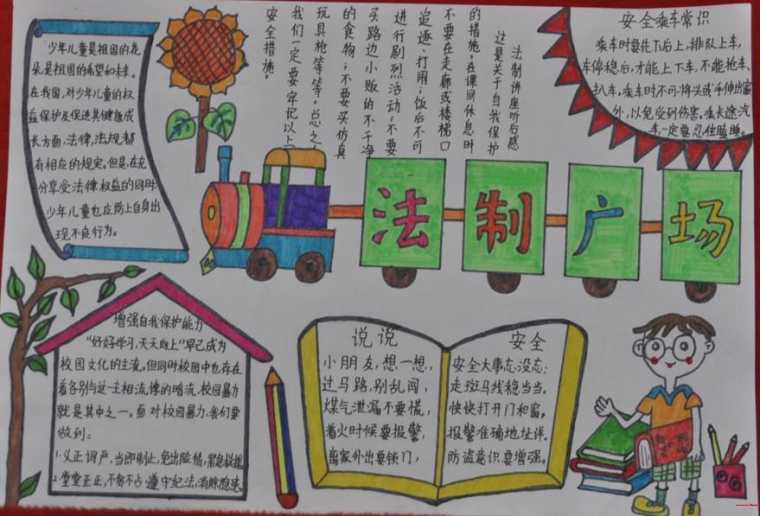 少年儿童是祖国的花
朵是祖国的希望和未来。
在我国,对少年儿童的权
益保护及促进其健康成
长方面,法律,法规都
有相应的规定。但是,在充
分享受法律权益的同时
少年儿童也应防止自身出
现不良行为。
法制讲座听后感
这是关于自我保护
的措施。在课间休息时
不要在走廊或楼梯口
追逐、打闹;饭后不可
进行剧烈活动;不要
买路边小贩的不干净
的食物;不要买仿真
玩具枪等等。总之,
我们一定要牢记以上
安全措施。
安全乘车常识
乘车时要先下后上,排队上车,
车停稳后,才能上下车,不能抢车、
扒车,乘车时不可将头或手伸出窗
外,以免受到伤害。乘长途汽
车一定要忍住瞌睡。
法制广场
增强自我保护能力
“好好学习,天天向上”早已成为
校园文化的主流。但同时校园中也存在
着各别与这一主相流,悖的暗流。校园暴力
就是其中之一。面对校园暴力,我们要
做到:
1.义正词严,当即制止,
2.堂堂正正,不卑不亢,遵守纪法,消除隐患。
说说 安全
小朋友,想一想,
过马路,别乱闯,
煤气泄漏不要慌,
着火时候要报警,
离家外出要锁门,
安全大事忘没忘:
走斑马线稳当当。
快快打开门和窗,
报警准确地址详。
防盗意识要增强。